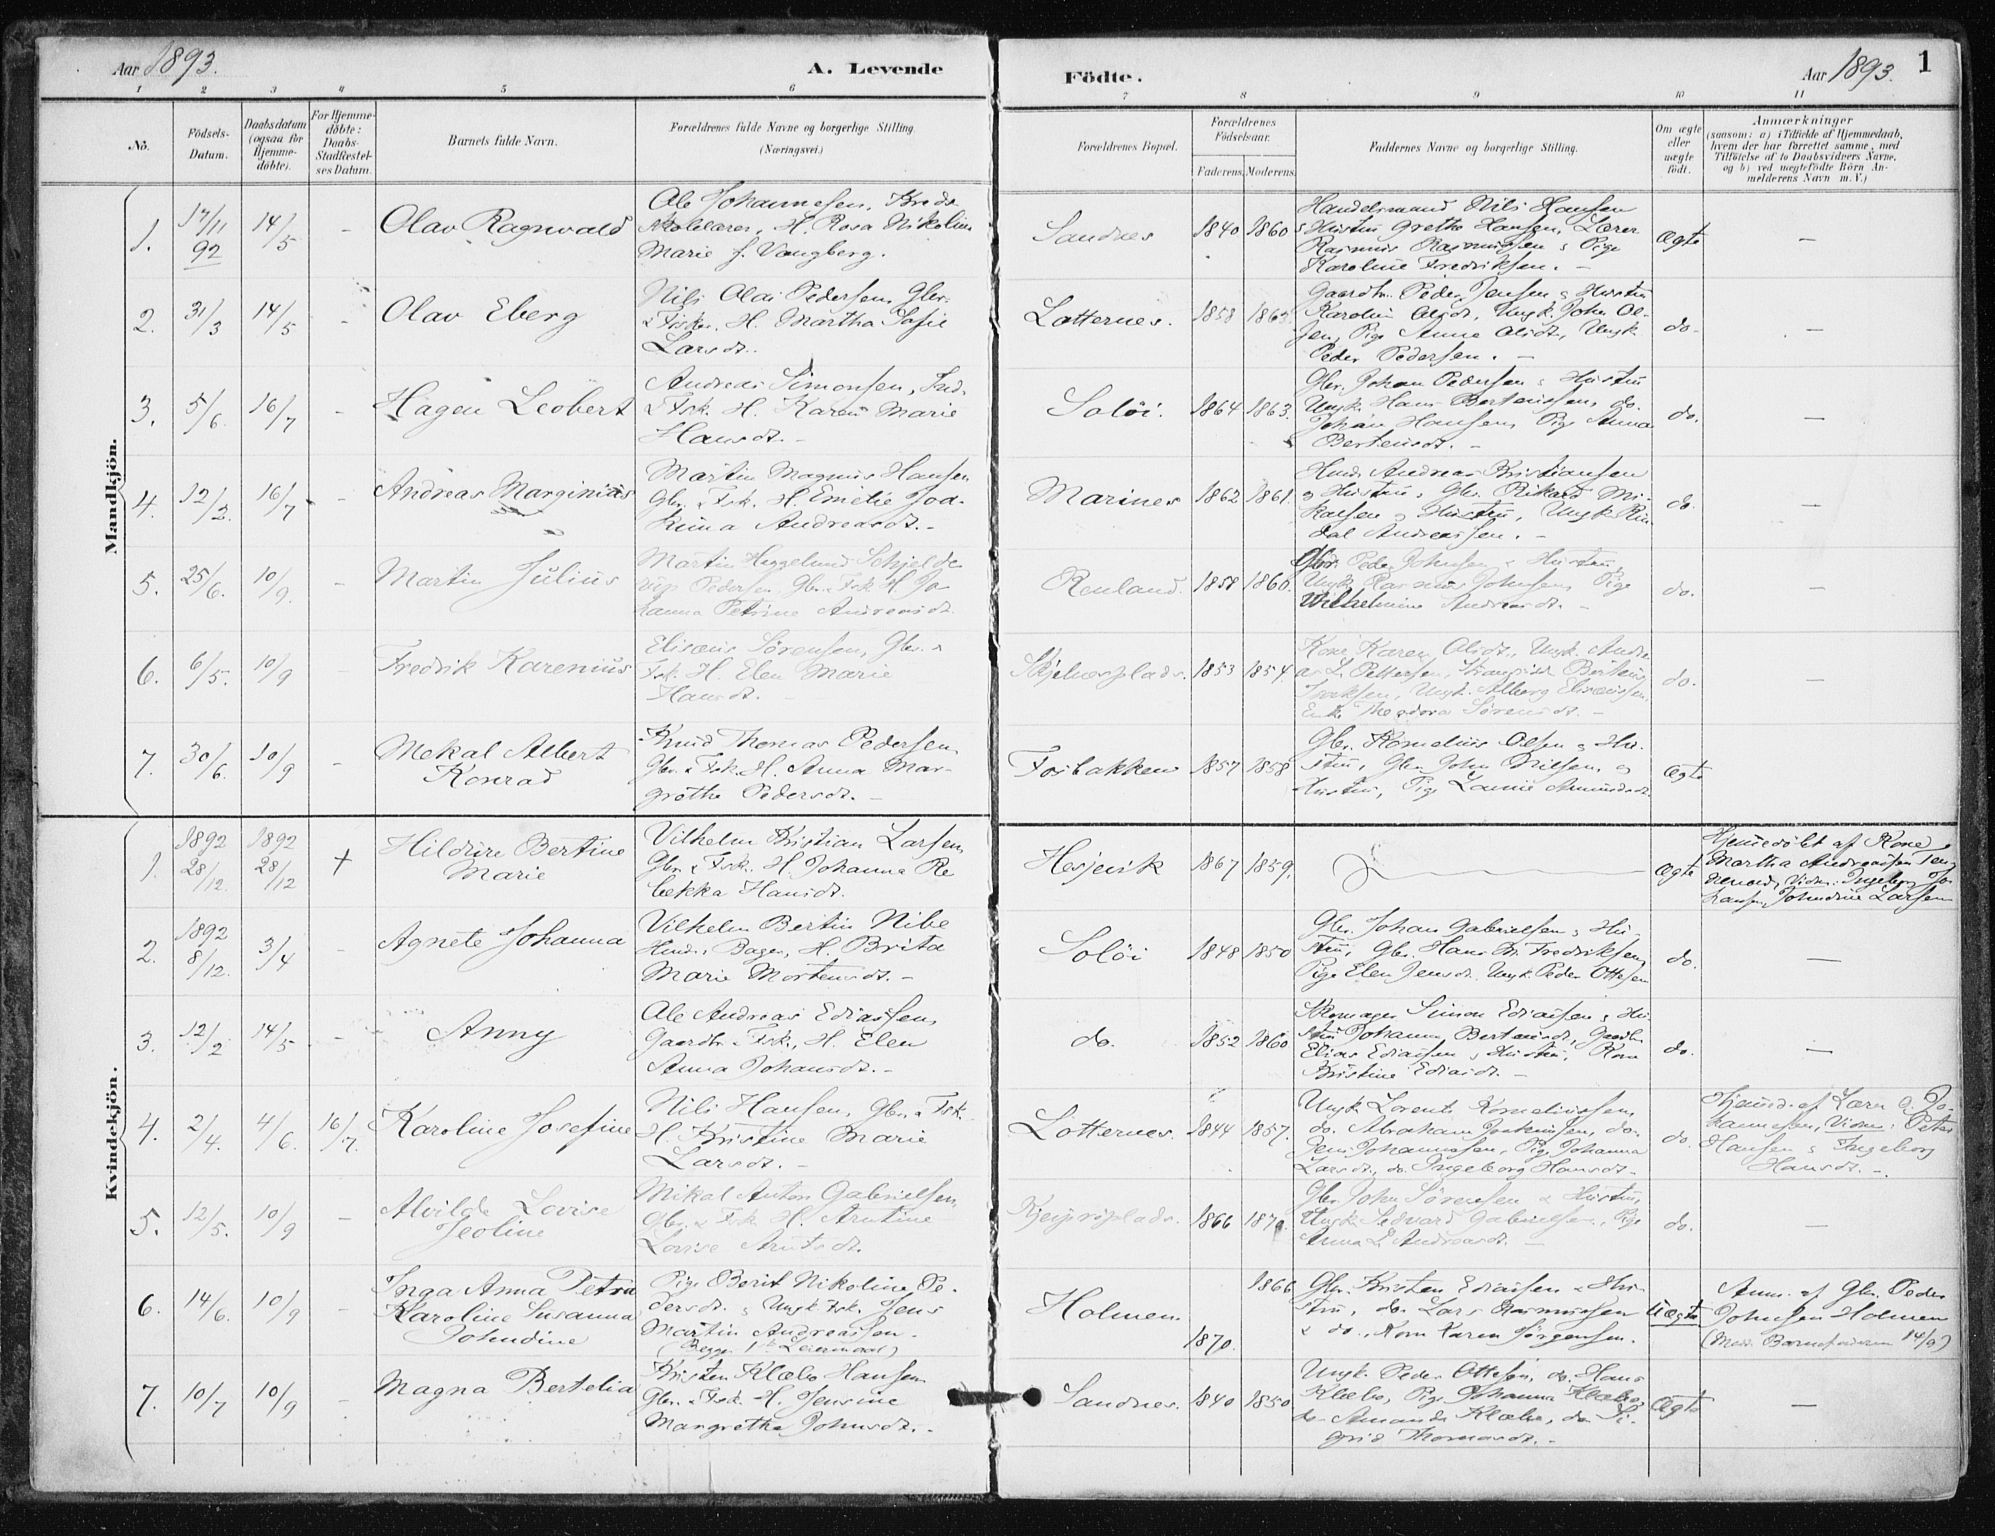 Aar 1893.
A. Levende
Födte.
Aar 1893.
1
1 2 3 4 5 6 7 8 9 10 11
No.
Födsels-
Datum.
Daabsdatum
(ogsaa for
Hjemme-
döbte).
For Hjemme-
döbte:
Daabs-
Stadfæstel-
ses Datum.
Barnets fulde Navn.
Forældrenes fulde Navne og borgerlige Stilling.
(Næringsvei.)
Forældrenes Bopæl.
Forældrenes
Födselsaar.
Faderens. Moderens.
Faddernes Navne og borgerlige Stilling.
Om ægte
eller
uægte
födt.
Anmærkninger
(saasom: a) i Tilfælde af Hjemmedaab,
hvem der har forrettet samme, med
Tilföielse af to Daabsvidners Navne,
og b) ved uægtefödte Börn An-
melderens Navn m. V.)
Mandkjön.
1. 17/11 92 14/5 - Olav Ragnvald
Ole Johannesen, Kreds
skolelærer, H. Rosa Nikoline
Marie f. Vangberg.
Sandnes 1840 1860
Handelsmand Nils Hansen
Hustru Grethe Hansen, Lærer
Rasmus Rasmussen, Pige
Karoline Fredriksen. -
Ægte -
2. 31/3 14/5 - Olav Eberg
Nils Olai Pedersen, Gbr.
& Fisker. H. Martha Sofie
Larsdt.
Lotternes. 1858 1863
Gaardbr. Peder Jensen & Hustru
Karolin Olsdt., Ungk. John Ol-
sen, Pige Anne Olsdt., Ungk.
Peder Pedersen. -
do. -
3. 5/6. 16/7 - Hagen Leobert
Andreas Simonsen, Ind.
& Fsk. H. Karen Marie
Hansdt. -
Soløi. 1864 1863.
Gbr. Johan Pedersen & Hustru
Ungk. Hans Bertinussen, do.
Johan Hansen, Pige Anna
Bertensdt. -
do. -
4. 12/2. 16/7 - Andreas Marginius
Martin Magnus Hansen
Gbr. & Fsk. H. Emelie Joa-
kima Andreasdt. -
Marines 1862 1861.
Hmd. Andreas Kristiansen
& Hustru, Gbr. Rikard Mi-
kalsen & Hustru, Ungk. Rin
dal Andreassen. -
do. -
5. 25/6. 10/9. - Martin Julius
Martin Heggelund Schjelde
rup Pedersen Gbr. & Fsk. H. Jo-
hanna Petrine Andreasdt.
Renland. 1858 1860.
Gbr. Peder Johnsen & Hustru,
Ungk. Rasmus Johnsen, Pige
Wilhelmine Andreasdt. -
do. -
6. 6/5. 10/9 - Fredrik Karenius
Elisæus Sørensen, Gbr. &
Fsk. H. Elen Marie
Hansdt. -
1853 1854.
Kone Karen Olsdt., Ungk. Andre
as L. Pettersen,
Isaksen, Ungk. Alberg Elisæussen
Enke Theodora Sørensdt. -
do. -
7. 30/6. 10/9 - Mekal Albert
Konrad
Knud Thomas Pedersen
Gbr. & Fsk. H. Anna Mar-
grethe Pedersdt. -
Fosbakken 1857 1858
Gbr. Kornelius Olsen & Hu-
stru, Gbr. John Nilsen, &
Hustru, Pige Amundsdt.
Ægte
Kvindekjön.
1. 1892 28/12. 1892 28/12 + Hildrine Bertine
Marie
Vilhelm Kristian Larsen,
Gbr. & Fsk. H. Johanna Re
bekka Hansdt.
Hesjevik 1867 1859.
Ægte
Hjemmedøbt af Kone
Martha Andreassen
Vidn. Ingeborg Jo
hansen, Johndine Larsen
2. 1892 8/12. 3/4 - Agnete Johanna
Vilhelm Bertin Nibe
Hmd. & Bager, H. Brita
Marie Mortensdt. -
Soløi 1848 1850
Gbr. Johan Gabrielsen & Hu-
stru, Gbr. Hans Kr. Fredriksen,
Pige Elen Jensdt. Ungk. Peder Ottesen
do. -
3. 12/2. 14/5 - Anny
Ole Andreas Ediassen,
Gaardbr. & Fsk., H. Elen
Anna Johansdt. -
do. 1852 1860
Skomager Simon Ediassen & Hu-
stru Johanna Bertensdt, Gaardbr.
Elias Ediassen & Hustru, Kone
Kristine Ediasdt. -
do. -
4. 2/4. 4/6. 16/7. Karoline Josefine
Nils Hansen, Gbr. & Fsk.
H. Kristine Marie
Larsdt. -
Lotternes. 1844 1857.
Ungk. Lorents Korneliussen,
do. Abraham Joakimsen, do.
Jens Johannesen, Pige Johanna
Larsdt, do. Ingeborg Hansdt. -
do.
Hjemmd. af Lærer O. Jo-
hannesen, Vidne: Peter
Hansen & Ingeborg
Hansdt. -
5. 12/5. 10/9 - Alvilde Lovise
Jeoline
Mikal Anton Gabrielsen,
Gbr. & Fsk. H. Arntine
Lovise Arntsdt.
1866 1870.
Gbr. John Sørensen & Hustru,
Ungk. Sedvard Gabrielsen, Pige
Anna L. Andreasdt. -
do. -
6. 14/6. 10/9 - Inga Anna Petra
Karoline Susanna
Johndine
Pige Berit Nikoline Pe-
dersdt. & Ungk. Fsk. Jens
Martin Andreassen.
(Begge 1ste Leiermaal)
Holmen. 1870. 1866
Gbr. Kristen Ediassen & Hu-
stru, do. Lars Rasmussen
& do., Kone Karen Jørgensen.
Uægte
Anm. af Gbr. Peder
Johnsen Holmen
(Med. Barnefaderen 14/9)
7. 10/7 10/9 - Magna Bertelia
Kristen Klæbo Hansen
Gbr. & Fsk. H. Jensine
Margretha Johnsdt. -
Sandnes. 1840 1850
Ungk. Peder Ottesen, do. Hans
Klæbo, Pige Johanna Klæbo,
do. Amanda Klæbo, do. Si-
grid Thomasdt. -
Ægte -